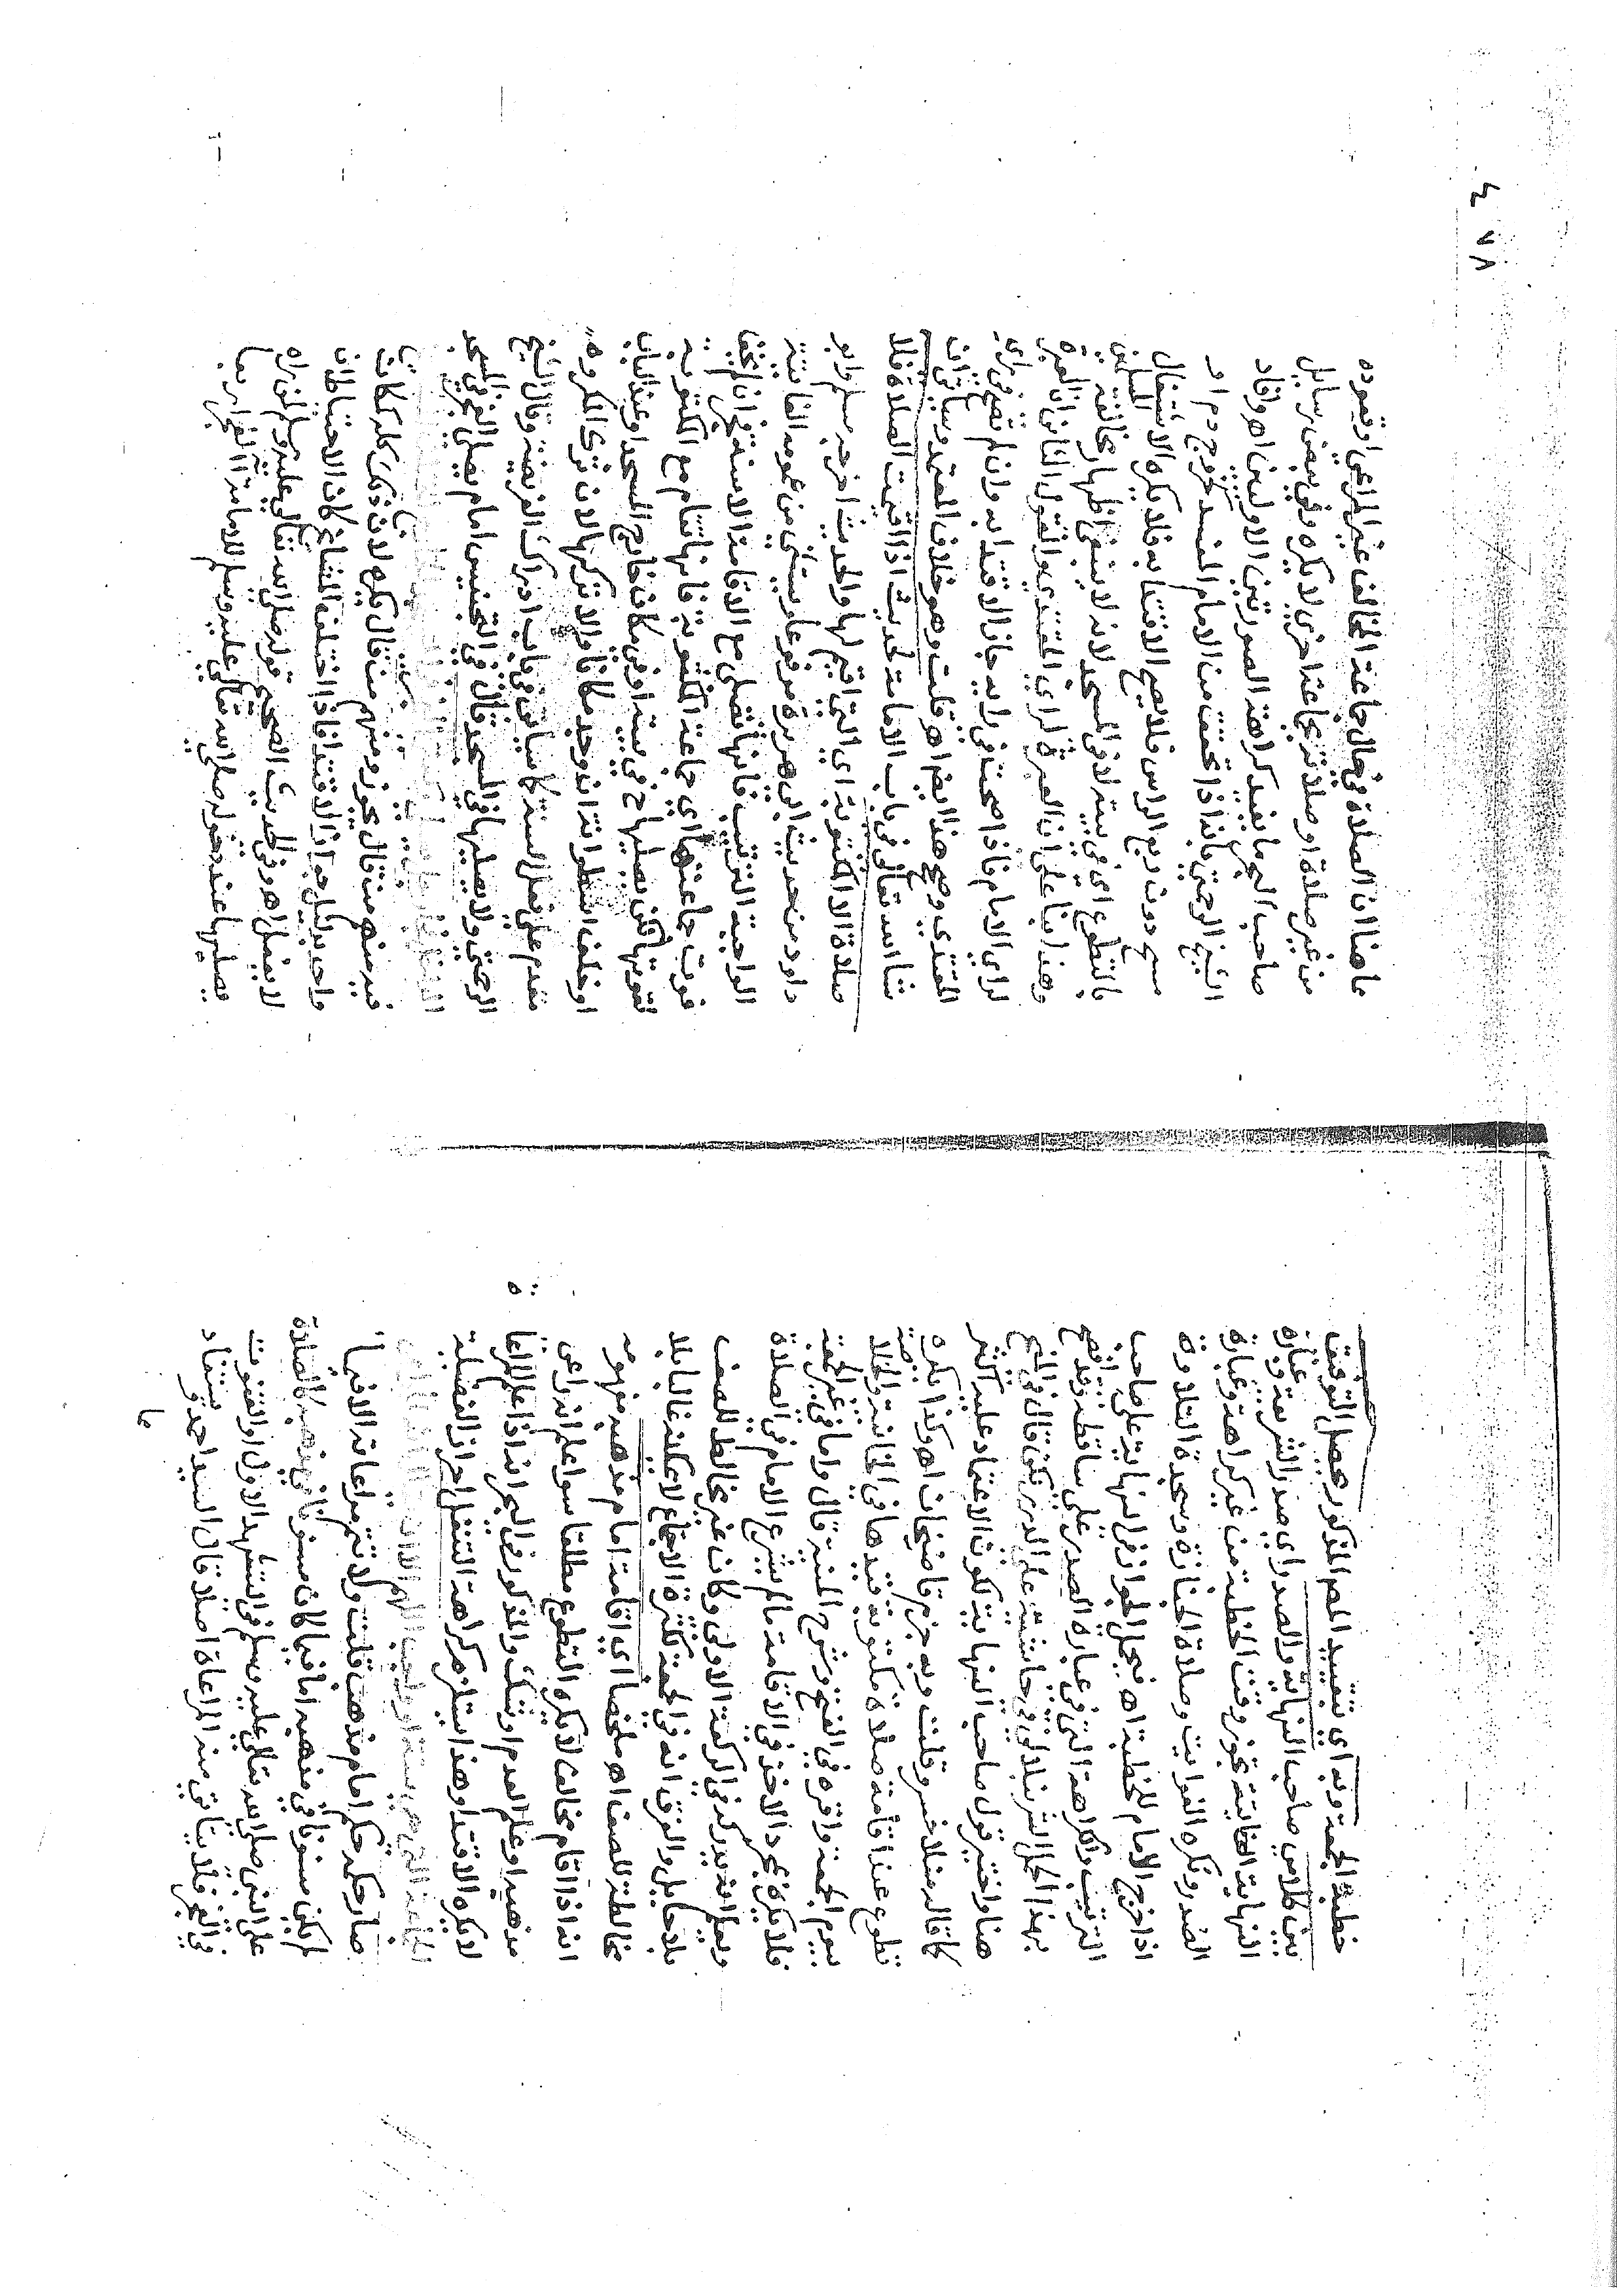 خطبة الجمعة وبه اي بتقييد المص المذكور يحصل التوفيق
بين كلامي صاحب النهاية والصدر اي صدر الشريعة وعبارة
النهاية الفائتة تجوز وقت الخطبة من غير كراهة وعبارة
الصدر وتكره الفوايت وصلاة الجنازة وسجدة التلاوة
اذا خرج الامام للخطبة اه فيحمل الجواز في النهاية على صاحب
الترتيب والكراهة التي في عبارة الصدر على ساقطه وقد افصح
بهذا الحمل الشرنبلالي في حاشيته على الدرر لكن قال في المنح
هنا واختير قول صاحب النهاية لكون الاعتماد عليه اكثر
كما قاله منلا خسرو قلت وبه جزم قاضيخان اه وكذا يكره
تطوع عند اقامة صلاة مكتوبة قيدها في الخانية والخلاصة
بيوم الجمعة واقره في الفتح وشرح المنية قال واما في غير الجمعة
فلا يكره بمجرد الاخذ في الاقامة ما لم يشرع الامام في الصلاة
ويعلم انه يدركه في الركعة الاولى وكان غير مخالط للصف
بلا حايل والفرق انه في الجمعة لكثرة الاجتماع لا يمكنه غالبا بلا
مخالطة للصف اه ملخصا اي اقامة امام مذهبه مفهومه
انه اذا اقام مخالف لا يكره التطوع مطلقا سوا علم انه راعى
مذهبه او علم العدم او شك والمذكور في البحر انه اذا علم المراعاة
لا يكره الاقتدا وهذا يستلزم كراهة التنفل احراز الفضيلة
الجماعة التي هي سنة او واجب
صار حكمه حكم امام مذهب قلت ولا تتم مراعاته الا فيما
لم يكن مسنونا في مذهبه اما فيما كان مسنونا في مذهبه كالصلاة
على النبي صلى الله تعالى عليه وسلم في التشهد الاول او القنوت
في الفجر فلا يتاتى منه المراعاة اصلا قال السيد احمد ويستفاد
ما
٧٨
ما هنا ان الصلاة في حال جماعة المخالف غير المراعي او قعوده
من غير صلاة او صلاته بجماعة اخرى لا يكره وفي بعض رسايل
صاحب البحر ما يفيد كراهة الصورتين الاوليين اه وافاد
الشيخ الرحمتي بانه اذا تحقق من الامام المفسد كخروج دم او
مسح دون ربع الراس فلا يصح الاقتدا به فلا يكره الاشتغال
بالتطوع اي في بيته لا في المسجد لانه لا ينبغي اظهار مخالفة المسلمين
وهذا بنا على ان العبرة لراي المقتدي والقول الثاني ان العبرة
لراي الامام فاذا صحت في رايه جاز الاقتدا به وان لم تصح في راي
المقتدي وصحح هذا ايضا اه قلت وهو خلاف المعتمد وسياتي ان
شا الله تعالى في باب الامامة لحديث اذا اقيمت الصلاة فلا
صلاة الا المكتوبة اي التي اقيم لها والحديث اخرجه مسلم وابو
داود من حديث ابي هريرة مرفوعا ويستثنى من عمومه الفائتة
الواجبة الترتيب فانها تصلى مع الاقامة الا سنة فجر ان لم يخف
فوت جماعتها اي جماعة المكتوبة فانها تقام مع المكتوبة
لقوتها لكن يصليها في بيته او في مكان خارج المسجد او عند الباب
او خلف اسطوانة ان وجد مكانا والا تركها لان ترك المكروه
مقدم على فعل السنة كما سياتي في باب ادراك الفريضة وقال الشيخ
الرحمتي ولا يصليها في المسجد قال في التجنيس امام يصلي الفجر في المسجد
فيه منهم من قال يجوز ومنهم من قال يكره لان ذلك كله كمكان
واحد بدليل جواز الاقتدا فاذا اختلف المشايخ كان الاحتياط ان
لا يفعل اه وفي الحديث الصحيح قوله صلى الله تعالى عليه وسلم لمن راه
يصليها عند دخوله صلى الله تعالى عليه وسلم للامامة آلفجر اربعا